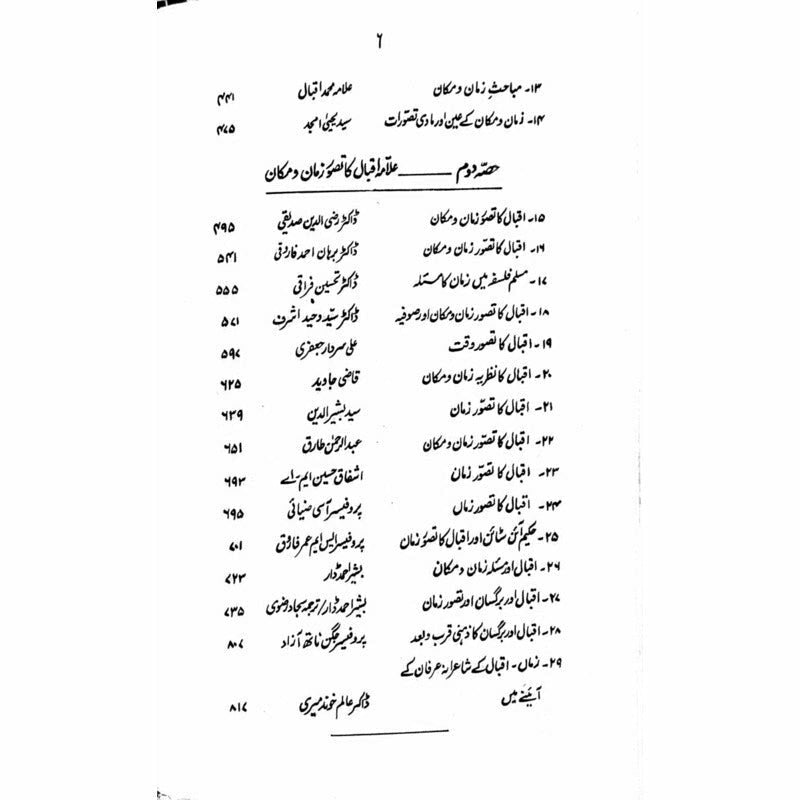 ۶
۱۳۔ مباحثِ زمان و مکان علامہ محمد اقبال ۴۴۱
۱۴۔ زمان و مکان کے عین اور مادی تصورات سید یحییٰ امجد ۴۷۵
حصّہ دوم ــــــ علامہ اقبال کا تصوّرِ زمان و مکان
۱۵۔ اقبال کا تصوّرِ زمان و مکان ڈاکٹر رضی الدین صدیقی ۴۹۵
۱۶۔ اقبال کا تصوّر زمان و مکان ڈاکٹر برہان احمد فاروقی ۵۴۱
۱۷۔ مسلم فلسفہ میں زمان کا مسئلہ ڈاکٹر تحسین فراقی ۵۵۵
۱۸۔ اقبال کا تصور زمان و مکان اور صوفیہ ڈاکٹر سیّد وحید اشرف ۵۷۱
۱۹۔ اقبال کا تصور وقت علی سردار جعفری ۵۹۷
۲۰۔ اقبال کا نظریہ زمان و مکان قاضی جاوید ۶۲۵
۲۱۔ اقبال کا تصوّر زمان سید بشیر الدین ۶۳۹
۲۲۔ اقبال کا تصوّر زمان و مکان عبدالرحمٰن طارق ۶۵۱
۲۳۔ اقبال کا تصوّر زمان اشفاق حسین ایم۔اے ۶۹۳
۲۴۔ اقبال کا تصور زماں پروفیسر آسی ضیائی ۶۹۵
۲۵۔ حکیم آئن سٹائن اور اقبال کا تصوّر زمان پروفیسر ایس ایم عمر فاروق ۷۰۱
۲۶۔ اقبال اور مسئلہ زمان و مکان بشیر احمد ڈار ۷۲۳
۲۷۔ اقبال اور برگساں اور تصور زمان بشیر احمد ڈار/ترجمہ سجاد رضوی ۷۳۵
۲۸۔ اقبال اور برگساں کا ذہنی قرب و بعد پروفیسر جگن ناتھ آزاد ۸۰۷
۲۹۔ زماں۔ اقبال کے شاعرانہ عرفان کے
آئینے میں ڈاکٹر عالم خوندمیری ۸۱۷